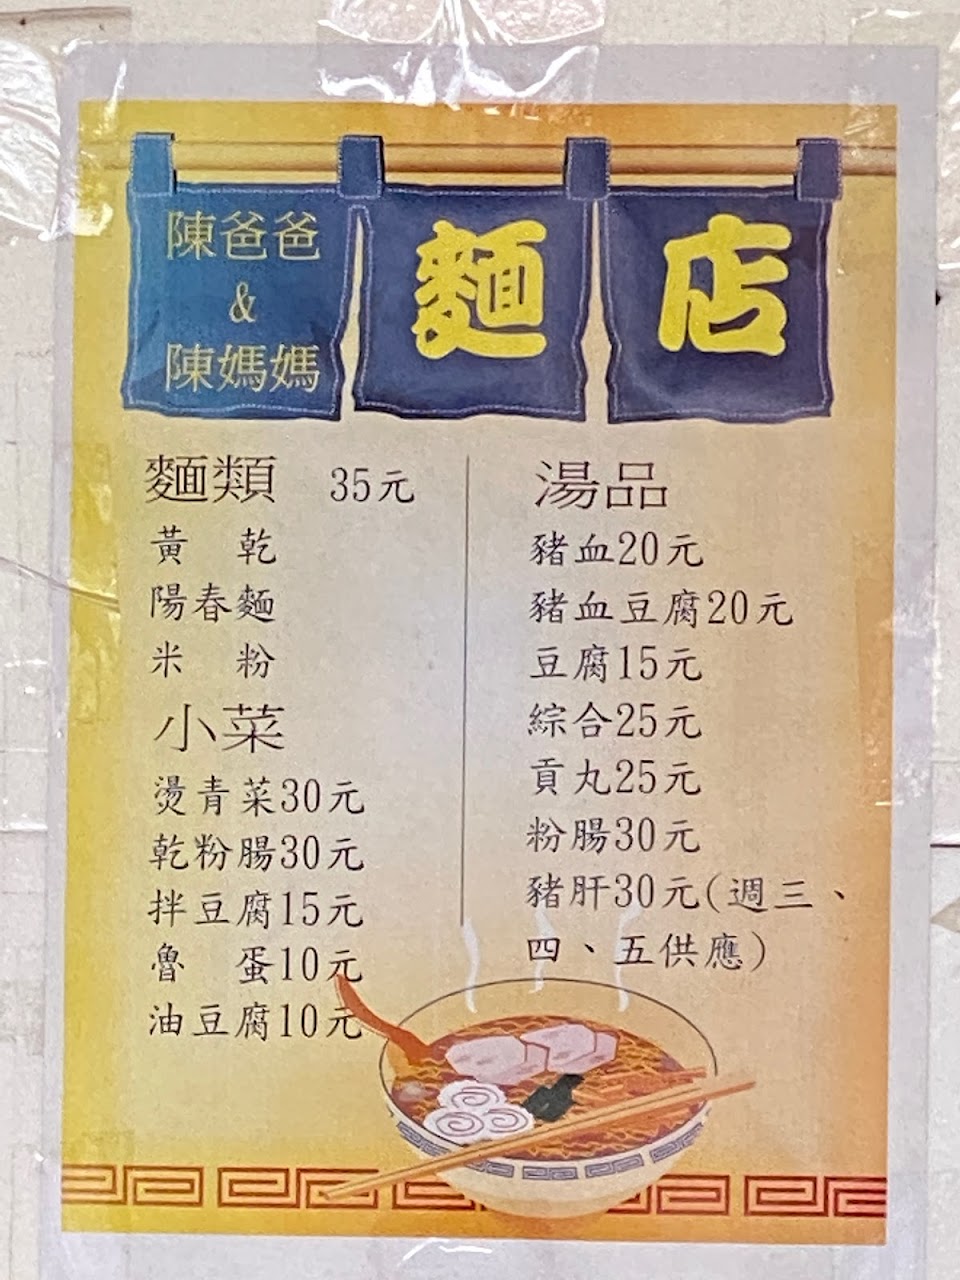 陳爸爸
&
陳媽媽
麵店
麵類 35元
黃 乾
陽春麵
米 粉
小菜
燙青菜30元
乾粉腸30元
拌豆腐15元
魯 蛋10元
油豆腐10元
湯品
豬血20元
豬血豆腐20元
豆腐15元
綜合25元
貢丸25元
粉腸30元
豬肝30元(週三、
四、五供應)